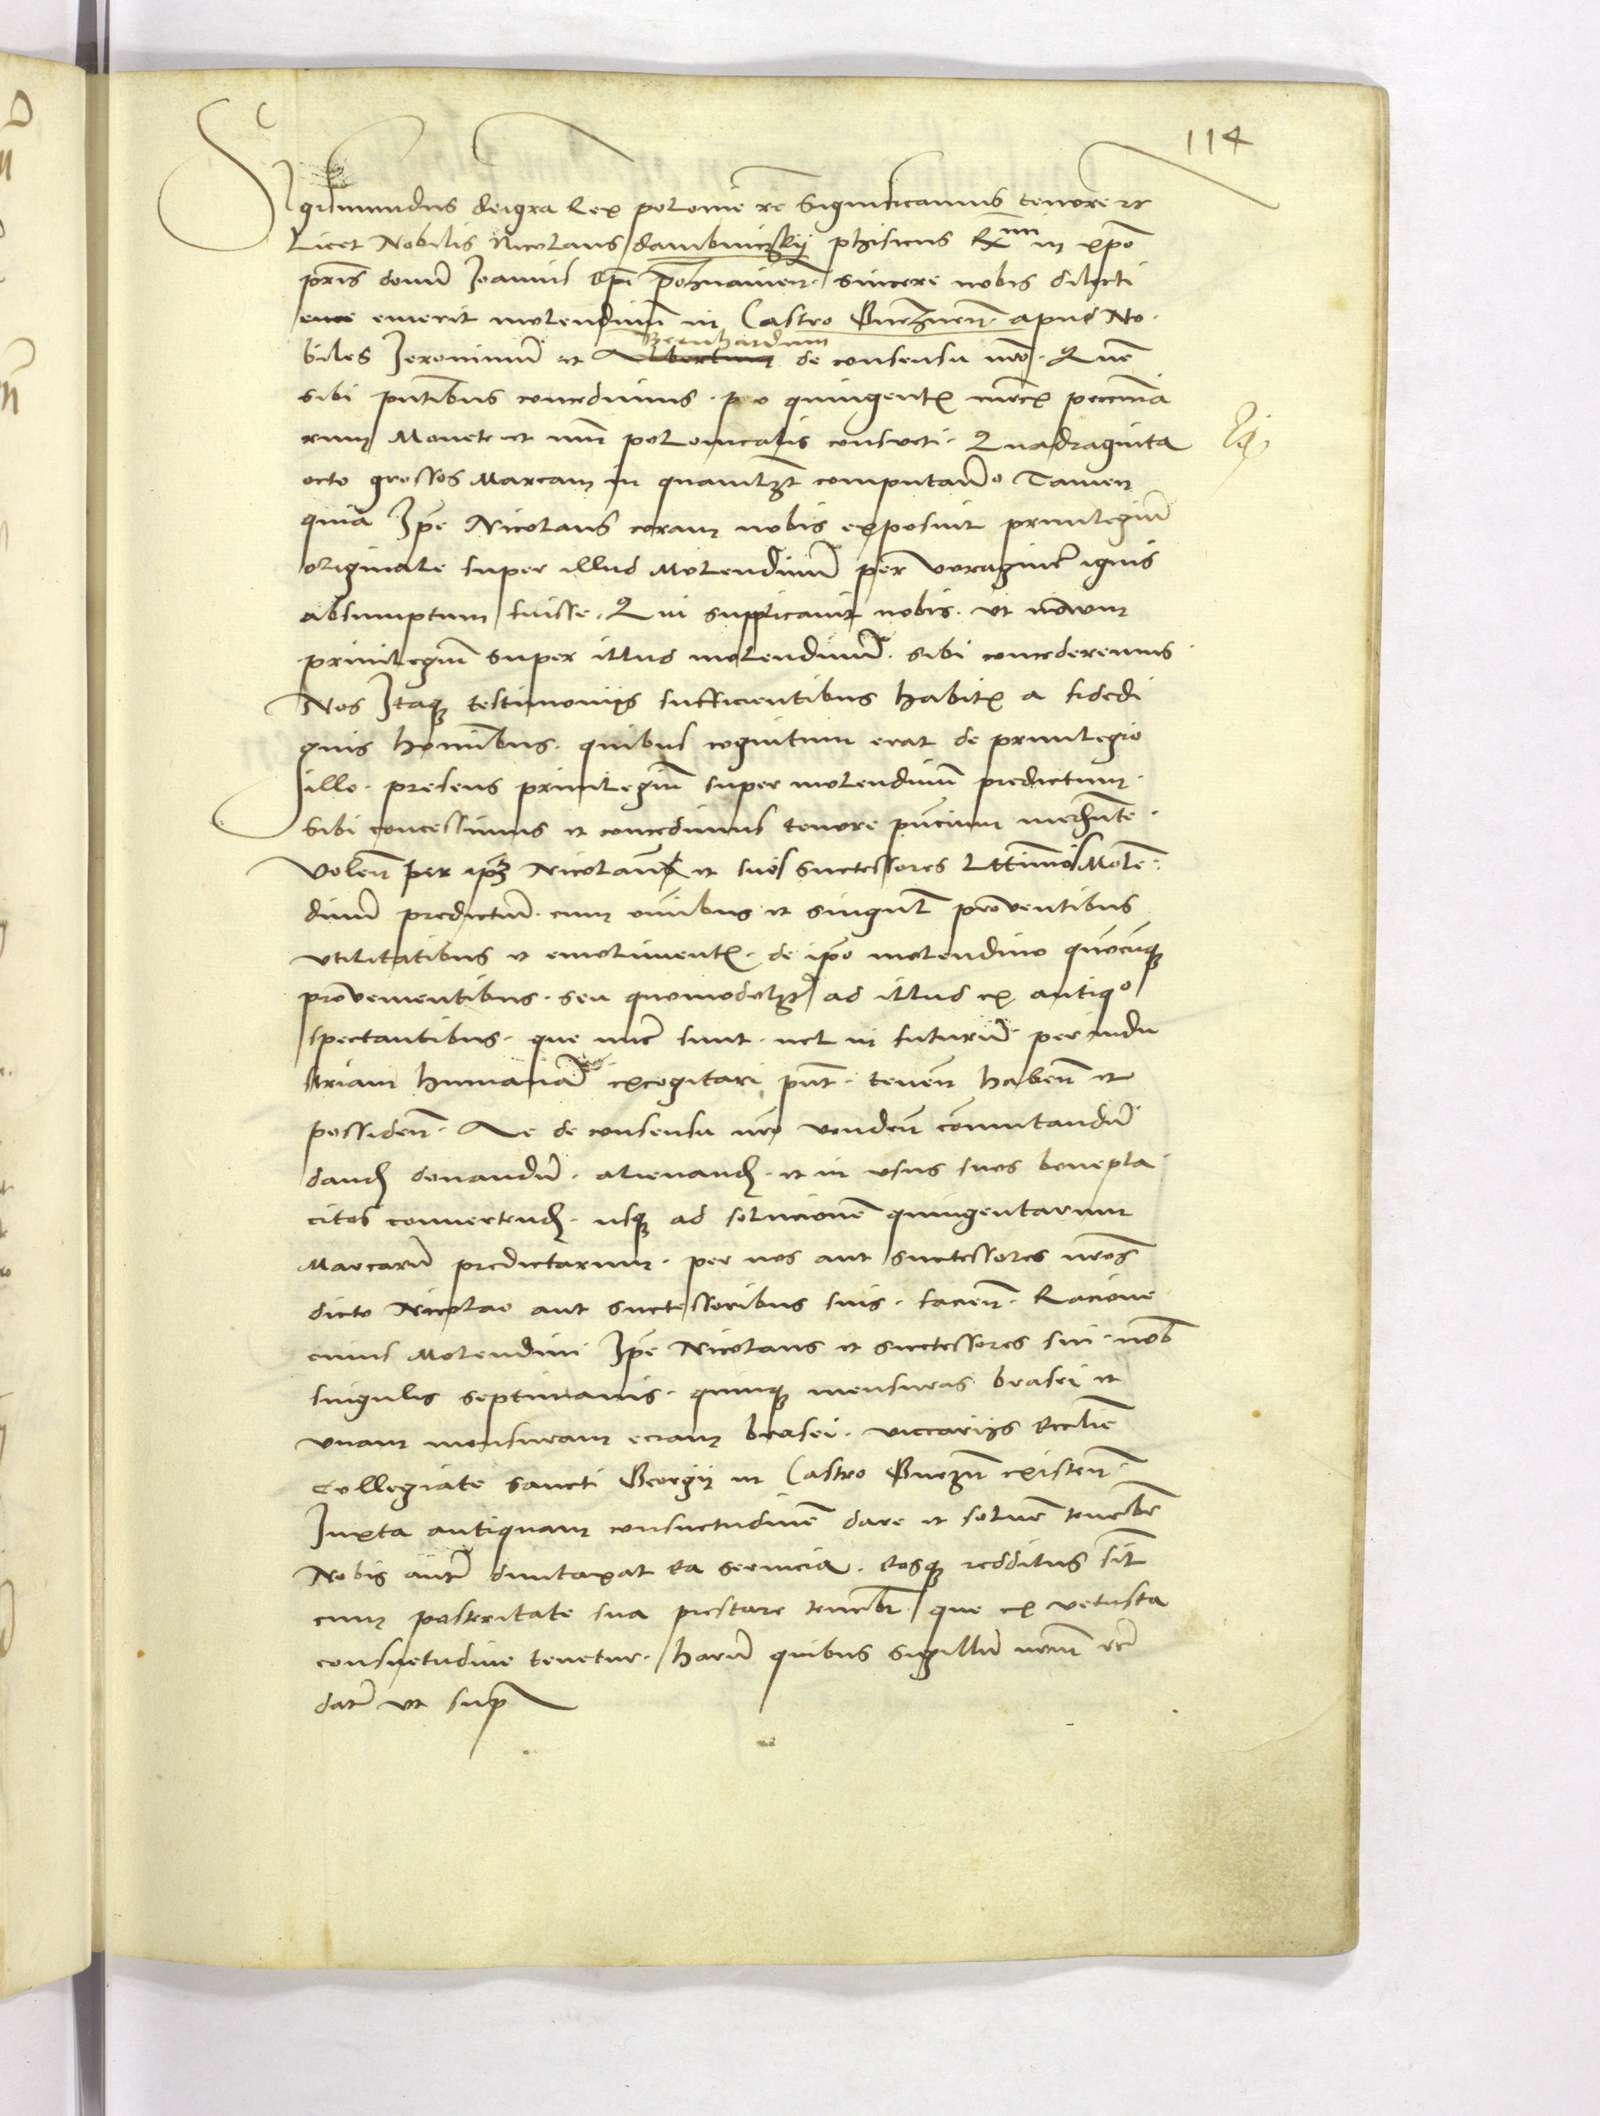 114
Sigismundus dei gra Rex polonie rc Significamus tenore rc
Licet Nobilis Nicolaus dambniczkij phisicus Rmi in xpo
pris domi Joannis Epi Poznanien sincere nobis dilecti
emerit molendinum in Castro Gneznen apud No
biles Jeronimum et Bernhardum de consensu nro. Quem
sibi pntibus concedimus pro quingentis mrcis peccunia
rum Monete et nri polonicalis consueti. Quadraginta
octo grossos Marcam in quamlibet computando Tamen
quia Ipe Nicolaus coram nobis exposuit privilegium
originale super illud Molendinum per voraginem ignis
absumptum fuisse. Qui supplicavit nobis. ut novum
privilegium super illud molendinum. sibi concederemus
Nos Itaque testimoniis sufficientibus habitis a fidedi
gnis hominibus. quibus cognitum erat de privilegio
illo. presens privilegium super molendinum predictum
Sibi concessimus et concedimus tenore pncium mediante
Volen per ipm Nicolaum et suos successores Lttimos Molen
dinum predictum. cum omnibus et singulis proventibus
utilitatibus et emolimentis. de ipo molendino quocunque
provenientibus. seu quomodolibet ad illud ex antiquo
spectantibus. que nunc sunt. vel in futurum per indu
striam humanam excogitari pnt. tenen haben et
possiden. Ac de consensu nro venden commutandum
dand donandum. alienand. et in usus suos benepla
citos convertend. usque ad solucionem quingentarum
Marcarum predictarum. per nos aut successores nros
dicto Nicolao aut successoribus suis. facien. Racione
cuius Molendini Ipe Nicolaus et successores sui nob
singulis septimanis. quinque mensuras brasei et
unam mensuram eciam brasei. viccariis Ecclie
Collegiate sancti Georgii in Castro Gnezn existen
Juxta antiquam consuetudinem dare et solvere tenebn
Nobis autem duntaxat ea servicia. eosque redditus sil
cum posteritate sua prestare tenebr que ex vetusta
consuetudine tenetur. harum quibus sigillum nrm rc
datum ut supra